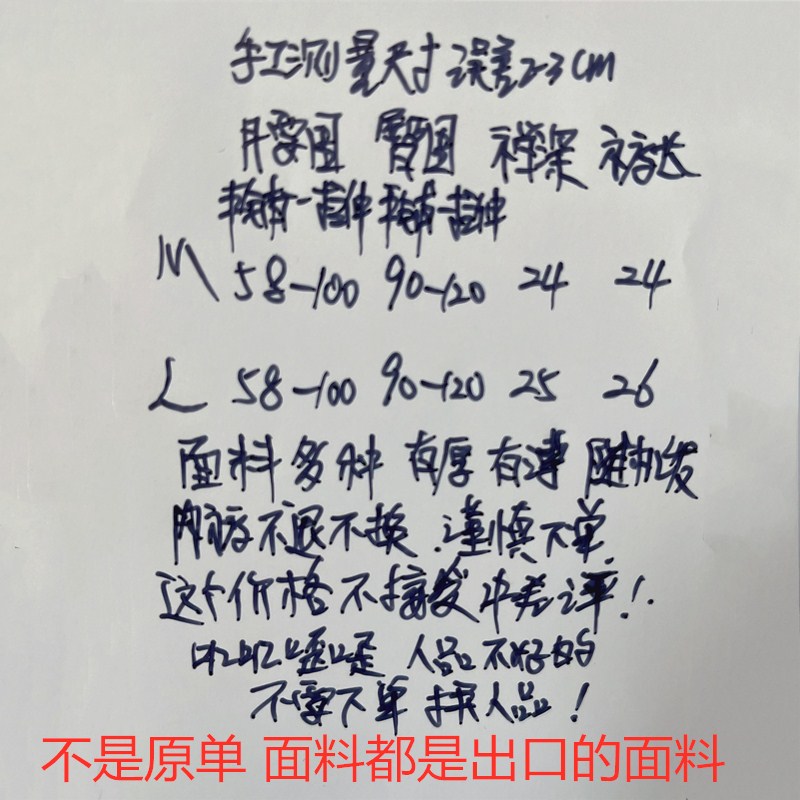 手工测量尺寸 误差2-3cm
腰围 臀围 裆深 裤长
拉直伸
M 58-100 90-120 24 24
L 58-100 90-120 25 26
面料多种 有厚有薄 随机发
内裤不退不换 谨慎下单
这个价格不接受中差评！
叽叽歪歪 人品不好的
不要下单 拼人品！
不是原单 面料都是出口的面料